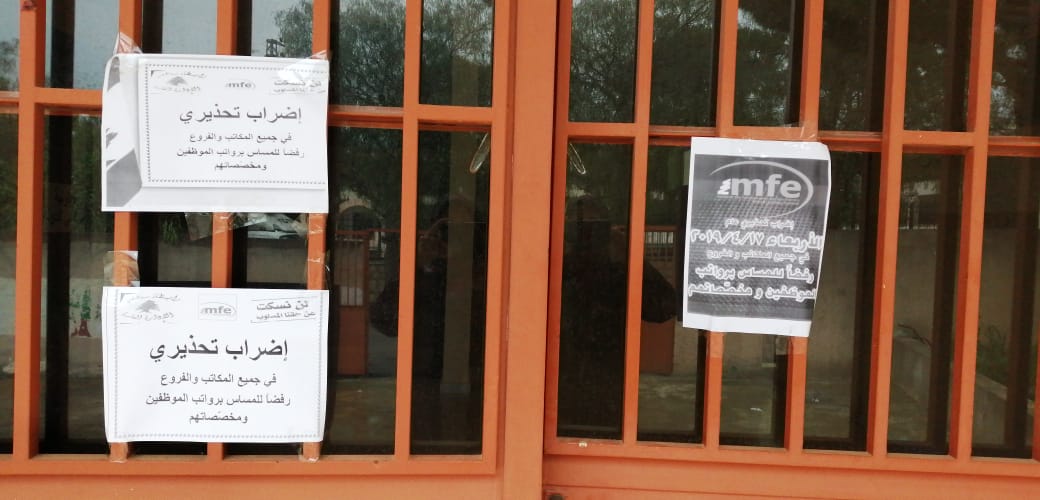 mfe
لن نسكت
عن حقنا المسلوب
إضراب تحذيري
في جميع المكاتب والفروع
رفضاً للمساس برواتب الموظفين
ومخصصاتهم
mfe
لن نسكت
عن حقنا المسلوب
إضراب تحذيري
في جميع المكاتب والفروع
رفضاً للمساس برواتب الموظفين
ومخصّصاتهم
mfe
إضراب تحذيري عام
الأربعاء ٢٠١٩/٤/١٧
في جميع المكاتب و الفروع
رفضاً للمساس برواتب
الموظفين و مخصّصاتهم